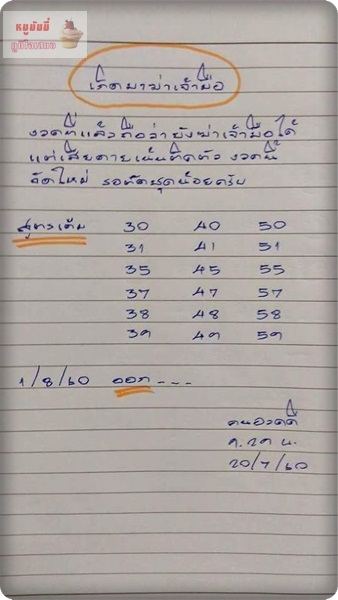 หมูมันนี่
เกิดมาฆ่าเจ้ามือ
งวดที่แล้วถือว่ายังฆ่าเจ้ามือได้
แต่เสียดายเน้นผิดตัว งวดนี้
จัดใหม่ รอตัดชุดน้อยครับ
สูตรเต้ม 30 40 50
31 41 51
35 45 55
37 47 57
38 48 58
39 49 59
1/8/60 ออก ---
คนอวดดี
20/7/60